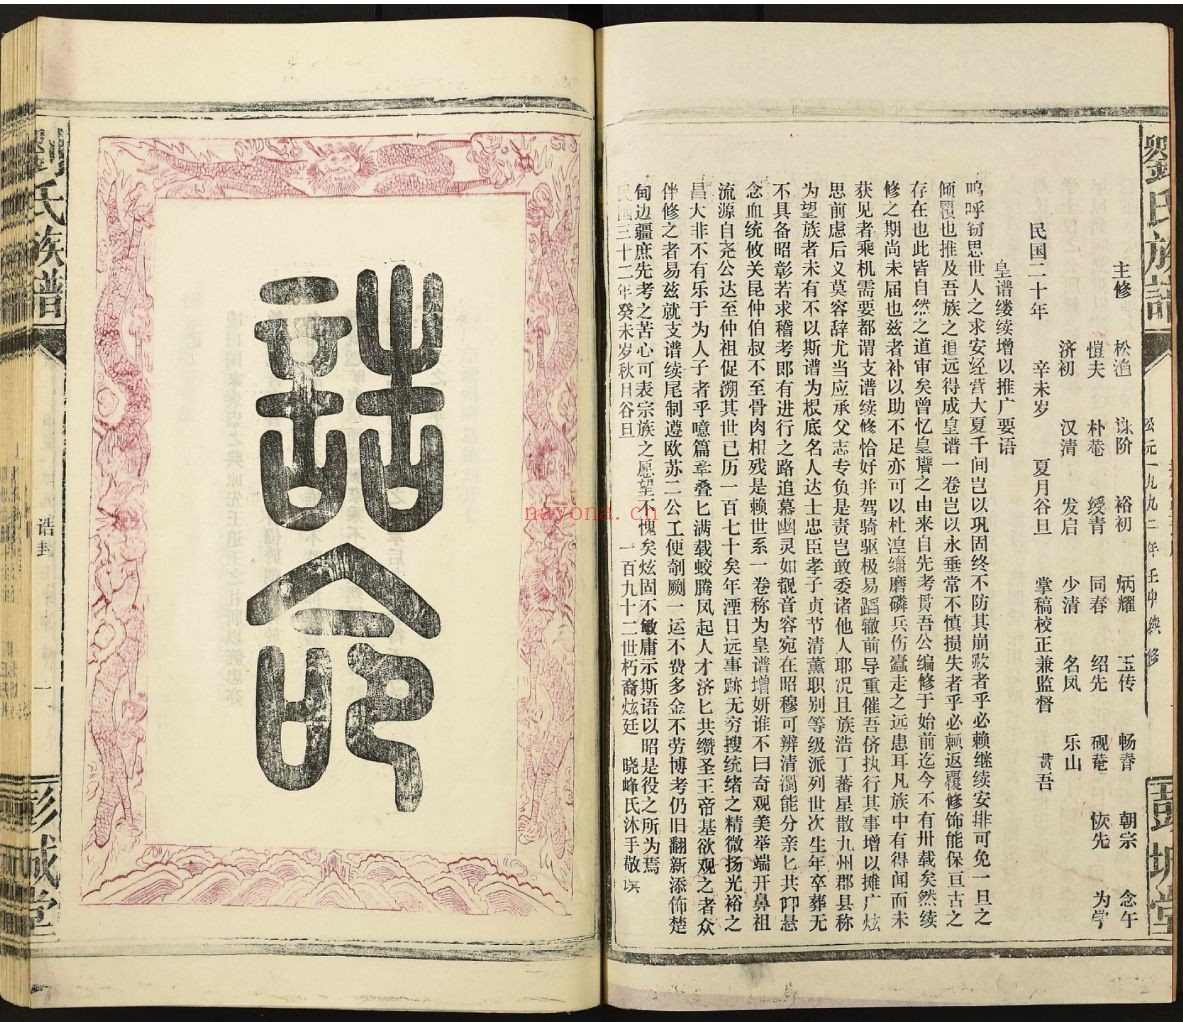 劉氏族譜
公元一九九二年壬申続修
彭城堂
主修 松渔 洙阶 裕初 炳耀 玉传 畅春 朝宗 念午
恺夫 朴菴 绶青 同春 绍先 砚菴 恢先 为学
济初 汉清 发启 少清 名凤 乐山
民国二十年 辛未岁 夏月谷旦 掌稿校正兼监督 贯吾
皇谱缕续增以推广要语
呜呼窃思世人之求安经营大夏千间岂以巩固终不防其崩欹者乎必赖继续安排可免一旦之
倾覆也推及吾族之追远得成皇谱一卷岂以永垂常不慎损失者乎必赖返覆修饰能保亘古之
存在也此皆自然之道审矣曾忆皇谱之由来自先考贯吾公编修于始前迄今不有卅载矣然续
修之期尚未届也兹者补以助不足亦可以杜湟缁磨磷兵伤蠹走之远患耳凡族中有得闻而未
获见者乘机需要都谓支谱续修恰好并驾骑驱极易蹈辙前导重催吾侪执行其事增以摊广炫
思前虑后义莫容辞尤当应承父志专负是责岂敢委诸他人耶况且族浩丁蕃星散九州郡县称
为望族者未有不以斯谱为根底名人达士忠臣孝子贞节清薰职别等级派列世次生年卒葬无
不具备昭彰若求稽考即有进行之路追慕幽灵如觐音容宛在昭穆可辨清浊能分亲匕共叩悬
念血统攸关昆仲伯叔不至骨肉相残是赖世系一卷称为皇谱增妍谁不曰奇观美举端开鼻祖
流源自尧公达至仲祖促溯其世已历一百七十矣年湮日远事跡无穷搜统绪之精微扬光裕之
昌大非不有乐于为人子者乎噫篇章叠匕满载蛟腾凤起人才济匕共缵圣王帝基欲观之者众
伴修之者易兹就支谱续尾制遵欧苏二公工便剞劂一运不费多金不劳博考仍旧翻新添饰楚
甸边疆庶先考之苦心可表宗族之愿望不愧矣炫固不敏庸示斯语以昭是役之所为焉
民国三十二年癸未岁秋月谷旦 一百九十二世朽裔炫廷 晓峰氏沐手敬㩀
誥命
劉氏族譜
诰封
一
彭城堂
nayona.cn